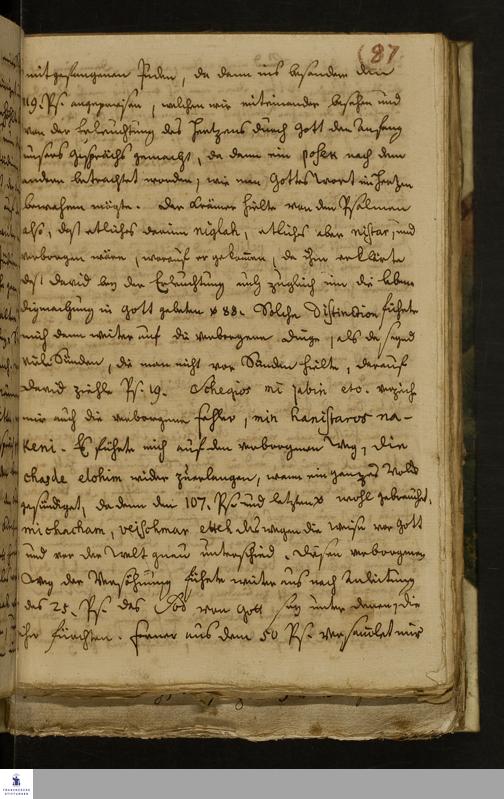 (87
mitgefangenen Juden, da dann ins besondere den
119. Ps. angepriesen, welchen wir miteinander besehen und
von der Erleuchtung des Hertzens durch Gott den Anfang
unsers Gesprächs gemacht, da dann ein posuk nach dem
andern betrachtet worden, wie man Gottes Wort im Hertzen
bewahren mögte. Der Krämer hielte von den Psalmen
alss, dass etliches darinn niglah, etliches aber nistar, und
verborgen wäre, worauf er gekommen, da ihm erklärte
dass David bey der Erleuchtung auch zugleich um die leben
digmachung in Gott gebeten v 88. Solche Distinction führete
mich dann weiter auf die verborgene dinge, als da seynd
viele Sünden, die man nicht vor Sünden hielte, darauf
David ziehle Ps. 19. Schegios mi jabin etc. verzeihe
mir auch die verborgene fehler, min hanistaros na-
keni. Es führte mich auf den verborgenen Weg, die
chasde elohim wieder zu erlangen, wenn ein ganzes Volk
gesündiget, da dann den 107. Ps. und letzten v wohl gebrauchet,
mi chacham, veischmar elleh deswegen die Weisen vor Gott
und vor der Welt genau unterschied. Diesen verborgenen
Weg der Versöhnung führete weiter aus nach Anleitung
des 25. Ps. das Sod von Gott sey unter denen, die
ihn fürchten. Ferner aus dem 50 Ps. versamlet mir
FRANCKESCHE
STIFTUNGEN